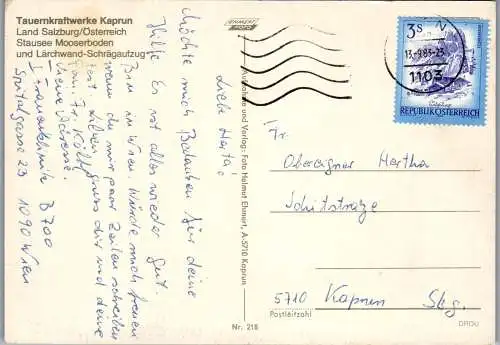 Tauernkraftwerke Kaprun
Land Salzburg/Österreich
Stausee Mooserboden
und Lärchwand-Schrägaufzug
Liebe Herta!
Möchte mich Bedanken für deine
Hilfe. Es ist alles wieder gut.
Bin in Wien. Würde mich freuen
wenn du mir paar Zeilen schreiben
Lieben Gruss dir und deine
Fam. Fr.
meine Adresse.
I Frauenklinik B 700
Spitalgasse 23 1090 Wien
Aufnahme und Verlag: Foto Helmut Ehmert, A-5710 Kaprun
Nr. 218
13.-9.83-23
1103
3S
REPUBLIK ÖSTERREICH
Fr.
Obereigner Hertha
Schistraße
5710 Kaprun Sbg.
Postleitzahl